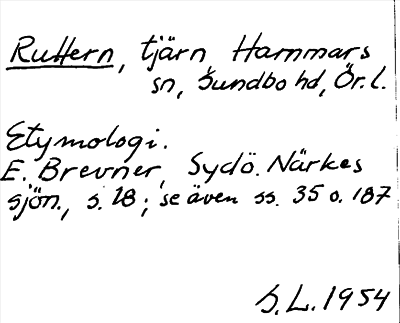 Ruttern, tjärn, Hammars
sn, Sundbo hd, Ör. l.
Etymologi.
E. Brevner, Sydö. Närkes
sjön., s. 18; se även ss. 35 o. 187
S.L. 1954